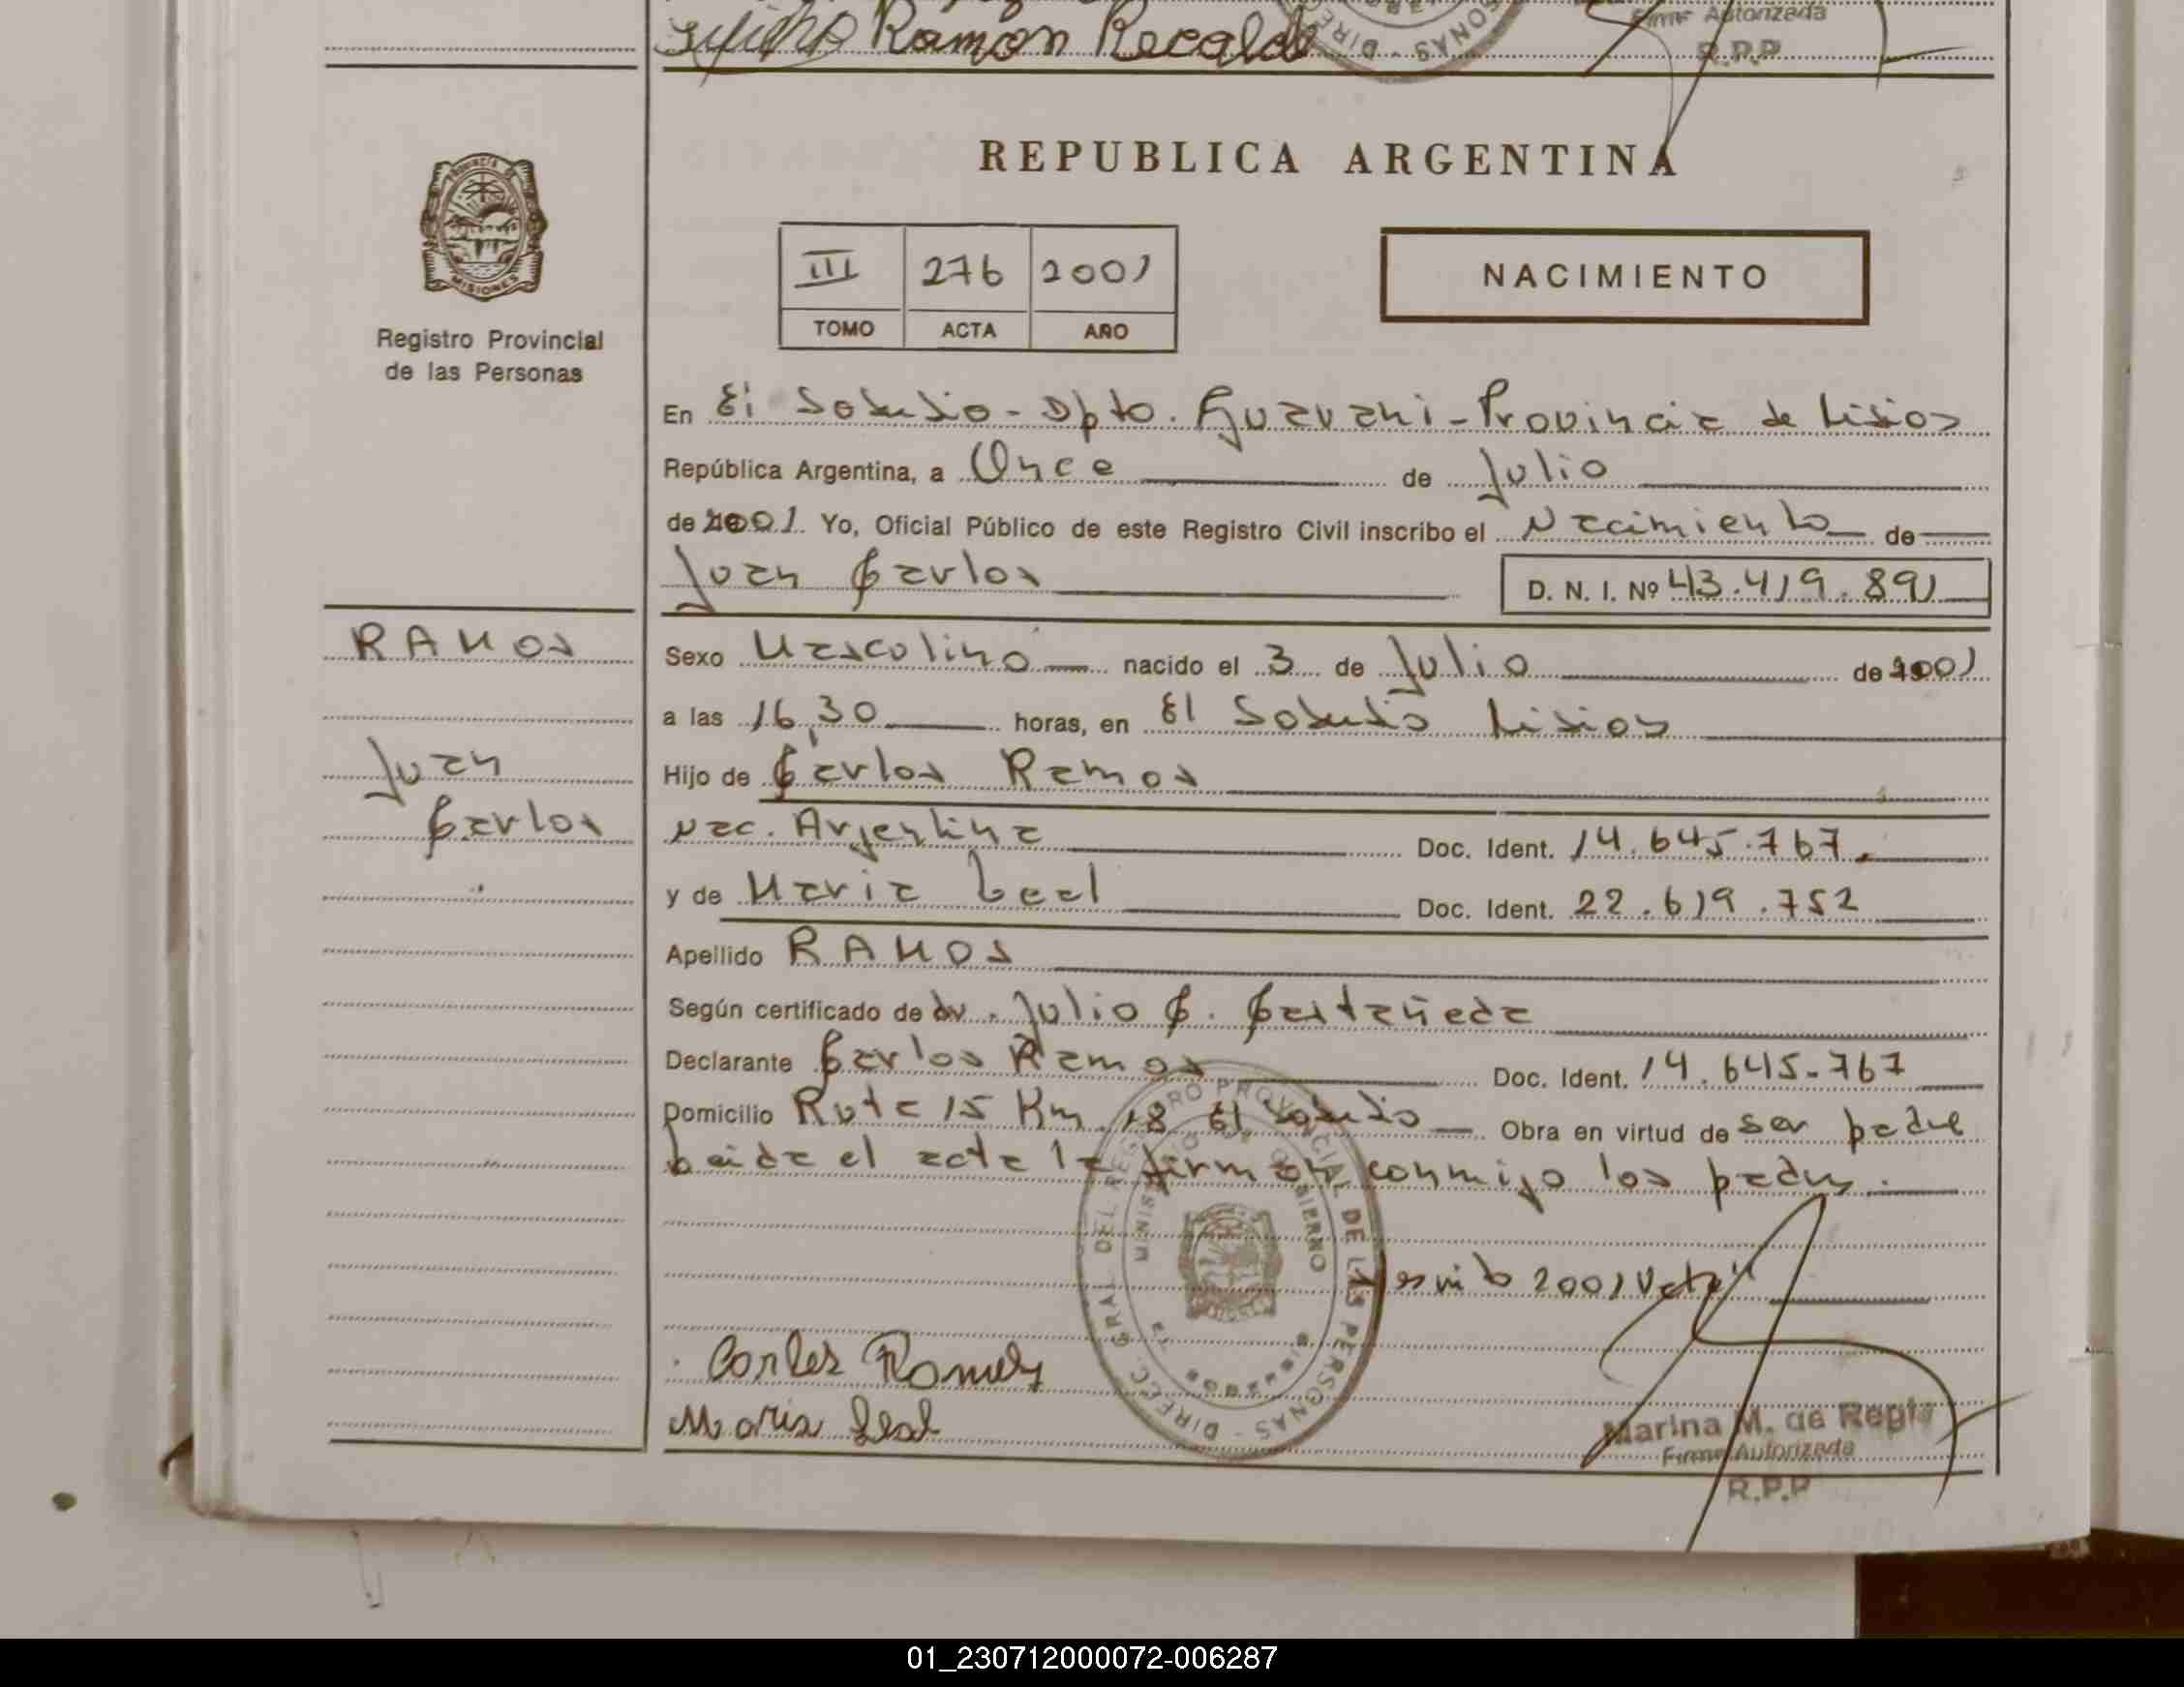 Ramon Recalde
Firma Autorizada
R.P.P
REPUBLICA ARGENTINA
III 276 2001
TOMO ACTA AÑO
NACIMIENTO
PROVINCIA
MISIONES
Registro Provincial
de las Personas
En El Soberbio - Dpto. Guarani - Provincia de Misiones
República Argentina, a Once de Julio
de 2001. Yo, Oficial Público de este Registro Civil inscribo el Nacimiento de
Juan Carlos D. N. I. Nº 43.419.891
RAMOS
Juan
Carlos
Sexo Masculino nacido el 3 de Julio de 2001
a las 16,30 horas, en El Soberbio Misiones
Hijo de Carlos Ramos
Nac. Argentina Doc. Ident. 14.645.767.
y de Maria Leal Doc. Ident. 22.619.752
Apellido RAMOS
Según certificado de dr. Julio C. Castañeda
Declarante Carlos Ramos Doc. Ident. 14.645.767
Domicilio Ruta 15 Km. 18 El Soberbio Obra en virtud de ser padre
Leida el acta la firman conmigo los padres.
2001 Vale
DIREC. GRAL. DEL REGISTRO PROVINCIAL DE LAS PERSONAS
MINISTERIO DE GOBIERNO
MISIONES
Carlos Ramos
Maria Leal
Marina M. de Regis
Firma Autorizada
R.P.P
01_230712000072-006287